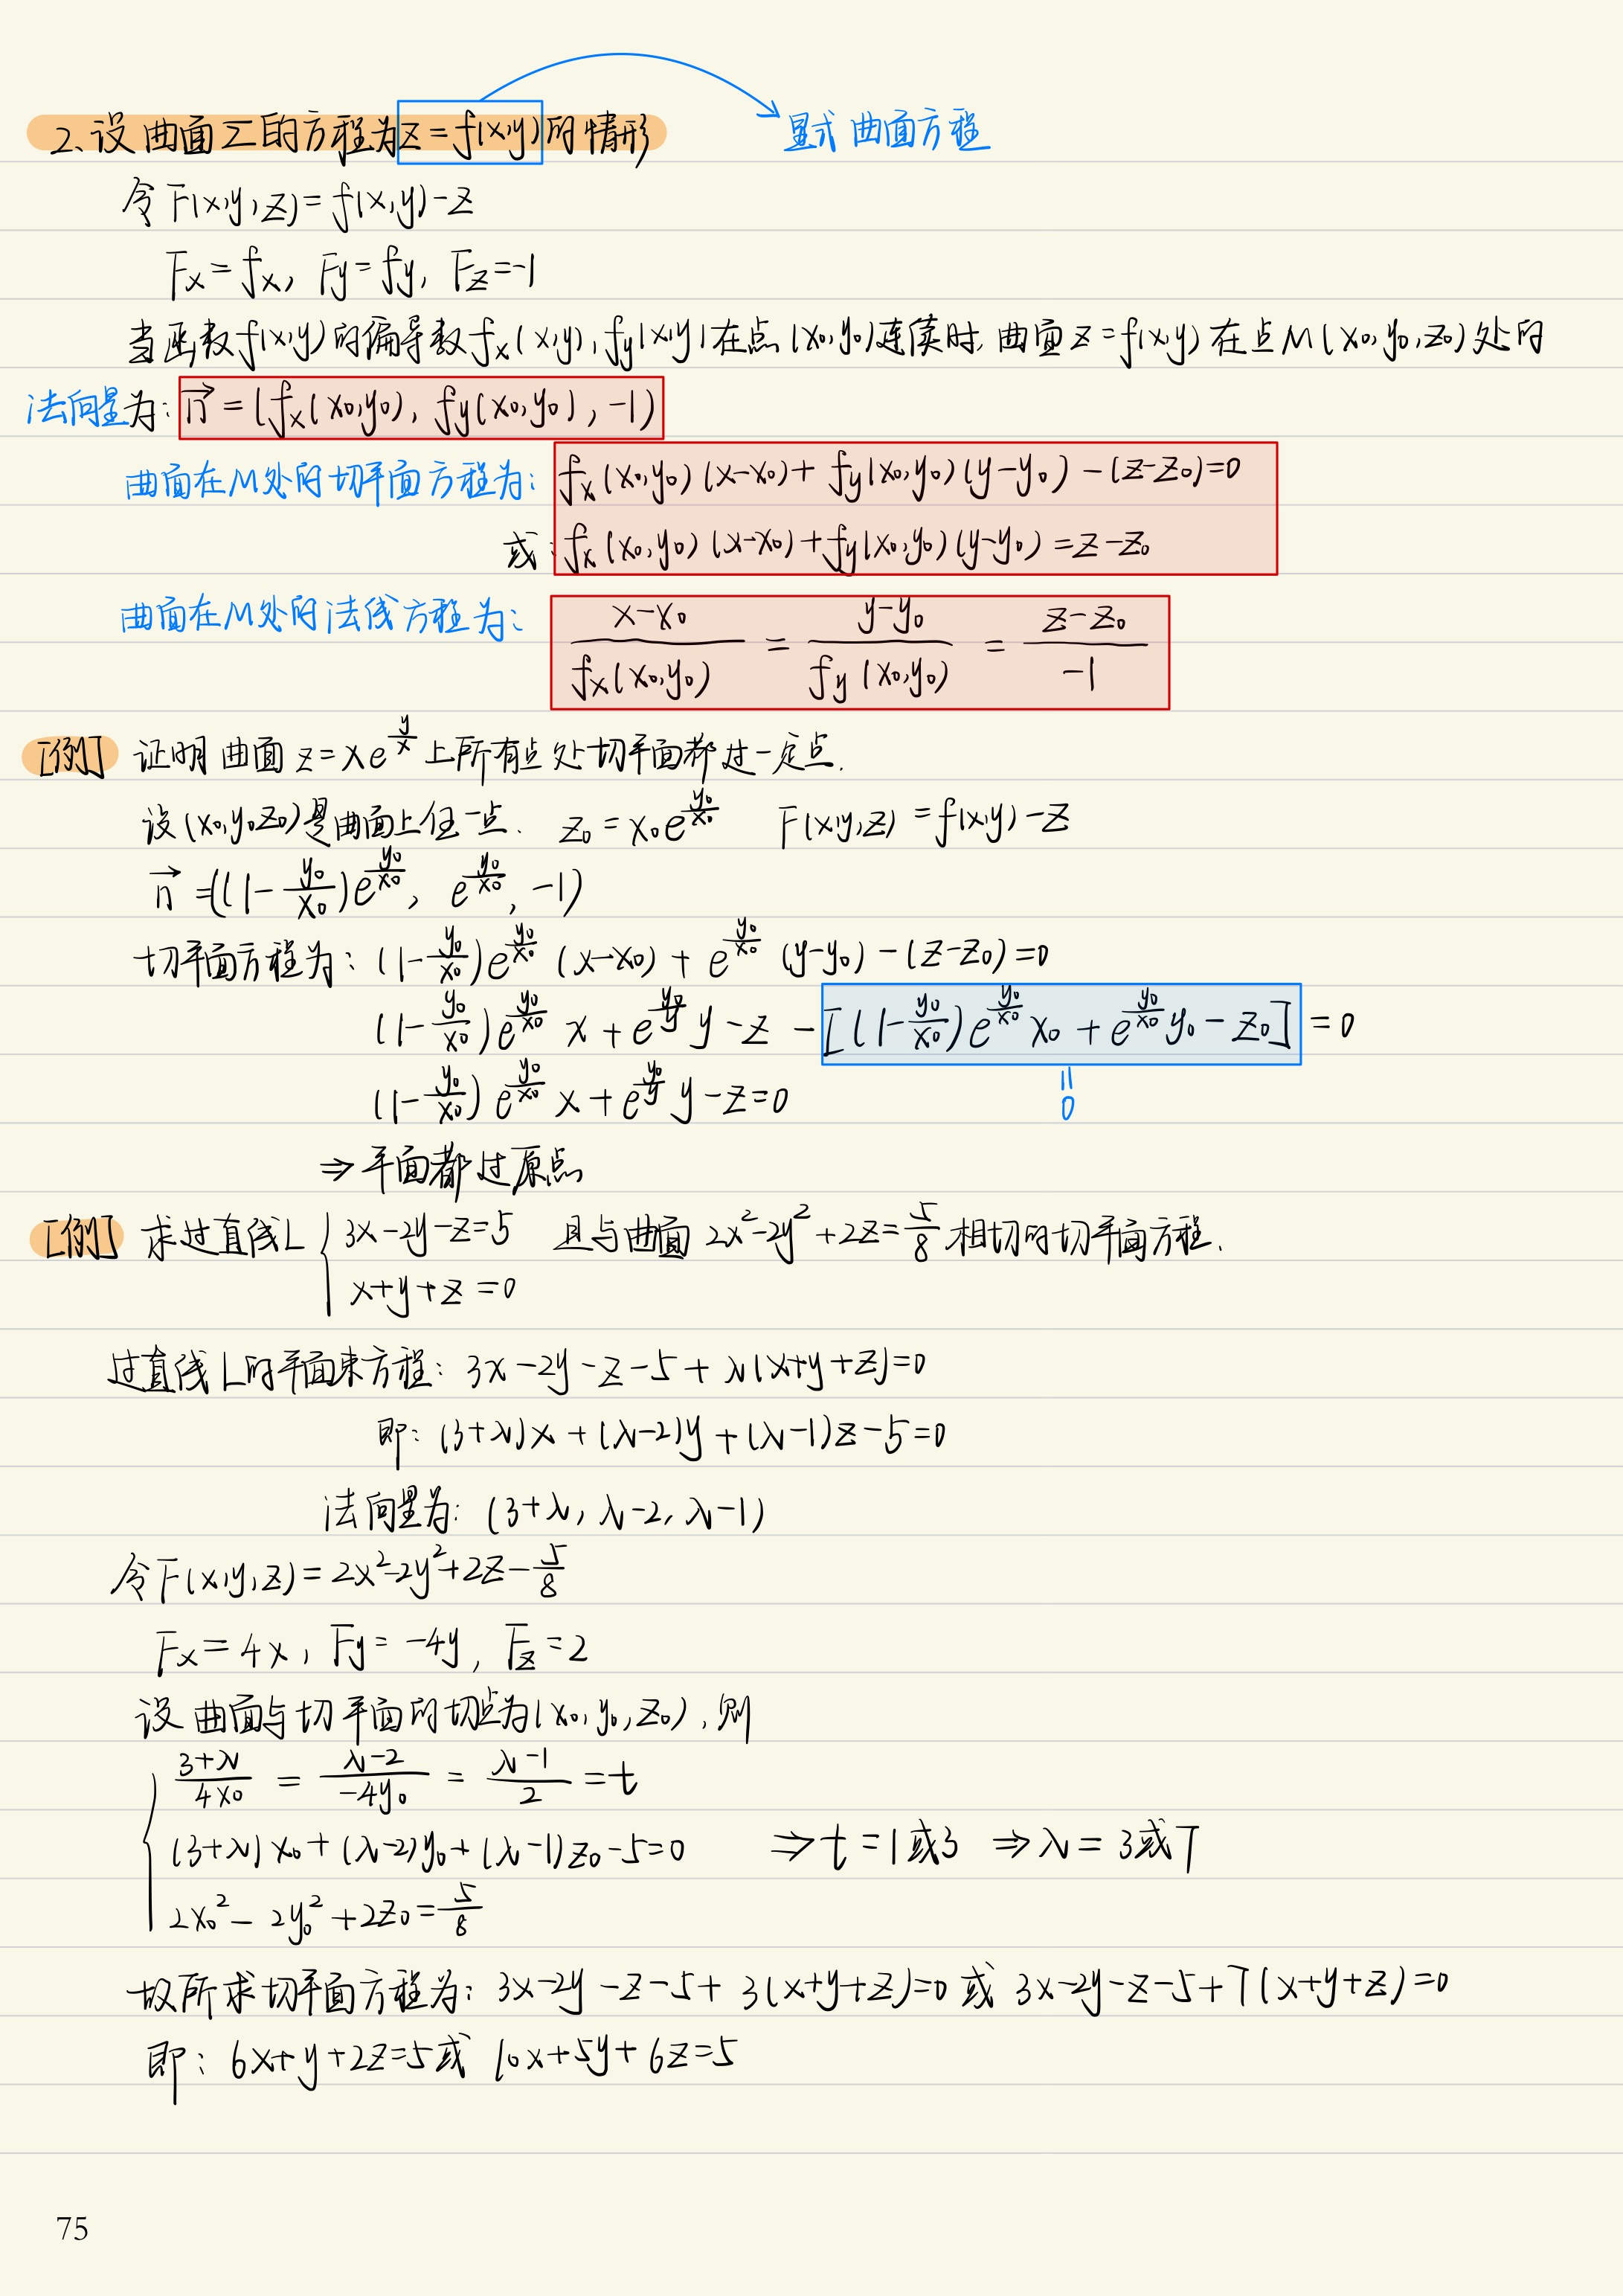 2、设曲面Σ的方程为z=f(x,y)的情形 显式曲面方程
令F(x,y,z)=f(x,y)-z
Fx=fx, Fy=fy, Fz=-1
当函数f(x,y)的偏导数fx(x,y),fy(x,y)在点(x₀,y₀)连续时,曲面z=f(x,y)在点M(x₀,y₀,z₀)处的
法向量为: n⃗=(fx(x₀,y₀), fy(x₀,y₀), -1)
曲面在M处的切平面方程为: fx(x₀,y₀)(x-x₀)+fy(x₀,y₀)(y-y₀)-(z-z₀)=0
或: fx(x₀,y₀)(x-x₀)+fy(x₀,y₀)(y-y₀)=z-z₀
曲面在M处的法线方程为: (x-x₀)/fx(x₀,y₀) = (y-y₀)/fy(x₀,y₀) = (z-z₀)/-1
[例] 证明曲面z=xe^(y/x)上所有点处切平面都过一定点.
设(x₀,y₀,z₀)是曲面上任一点. z₀=x₀e^(y₀/x₀) F(x,y,z)=f(x,y)-z
n⃗=((1-y₀/x₀)e^(y₀/x₀), e^(y₀/x₀), -1)
切平面方程为: (1-y₀/x₀)e^(y₀/x₀)(x-x₀)+e^(y₀/x₀)(y-y₀)-(z-z₀)=0
(1-y₀/x₀)e^(y₀/x₀)x+e^(y₀/y)y-z-[(1-y₀/x₀)e^(y₀/x₀)x₀+e^(y₀/x₀)y₀-z₀]=0
(1-y₀/x₀)e^(y₀/x₀)x+e^(y₀/y)y-z=0 =0
⇒平面都过原点
[例] 求过直线L { 3x-2y-z=5 且与曲面2x²-2y²+2z=5/8相切的切平面方程.
x+y+z=0
过直线L的平面束方程: 3x-2y-z-5+λ(x+y+z)=0
即: (3+λ)x+(λ-2)y+(λ-1)z-5=0
法向量为: (3+λ, λ-2, λ-1)
令F(x,y,z)=2x²-2y²+2z-5/8
Fx=4x, Fy=-4y, Fz=2
设曲面与切平面的切点为(x₀,y₀,z₀),则
(3+λ)/4x₀ = (λ-2)/-4y₀ = (λ-1)/2 =t
(3+λ)x₀+(λ-2)y₀+(λ-1)z₀-5=0 ⇒t=1或3 ⇒λ=3或7
2x₀²-2y₀²+2z₀=5/8
故所求切平面方程为: 3x-2y-z-5+3(x+y+z)=0或3x-2y-z-5+7(x+y+z)=0
即: 6x+y+2z=5或10x+5y+6z=5
75